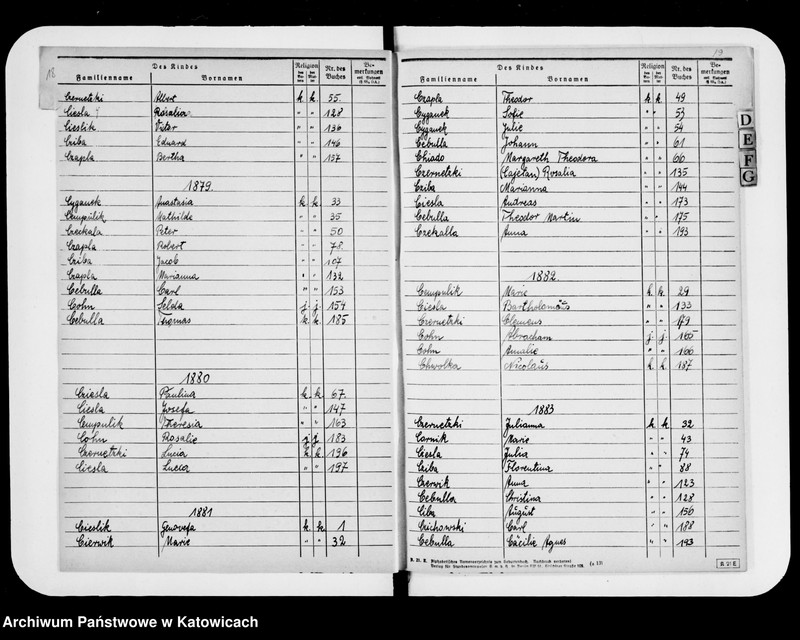 18
Des Kindes
Religion
Nr. des Buches
Be-merkungen
Familienname Vornamen
Czernetzki Albert k. k. 55.
Ciesla Rosalia " " 128
Cieslik Victor " " 136
Cziba Eduard " " 146
Czapla Bertha " " 157
1879.
Cyganek Anastasia k. k. 33
Cempulik Mathilde " " 35
Czekala Peter " " 50
Czapla Robert " " 78.
Cziba Jacob " " 107
Czapla Marianna " " 132
Cebulla Carl " " 153
Cohn Selda j. j. 154
Cebulla k. k. 185
1880
Cziesla Paulina k. k. 67.
Ciesla Josefa " " 147
Cmpulik Theresia " " 163
Cohn Rosalie j. j. 183
Czernetzki Lucia k. k. 196
Ciesla Lucia " " 197
1881
Cieslik Genovefa k. k. 1
Cierwik Marie " " 32
19
Des Kindes
Religion
Nr. des Buches
Be-merkungen
Familienname Vornamen
Czapla Theodor k. k. 49
Cyganek Sofie " " 53
Cyganek Julie " " 54
Cebulla Johann " " 61
Chiado Margareth Theodora " " 66
Czernetzki (Cajetan) Rosalia " " 135
Cziba Marianna " " 144
Ciesla Andreas " " 173
Cebulla Theodor Martin " " 175
Czekalla Anna " " 193
1882
Cmpulik Marie k. k. 29
Ciesla Bartholomäus " " 133
Czernetzki Clemens " " 179
Cohn Abracham j. j. 165
Cohn Amalie " " 166
Chwolka Nicolaus k. k. 187
1883
Czernetzki Julianna k. k. 32
Carnik Marie " " 43
Ciesla Julia " " 74
Cziba Florentina " " 88
Czerwik Anna " " 123
Cebulla Christina " " 128
Ciba August " " 156
Czichowski Carl " " 188
Cebulla Cäcilie Agnes " " 193
D
E
F
G
A 21 E
Archiwum Państwowe w Katowicach